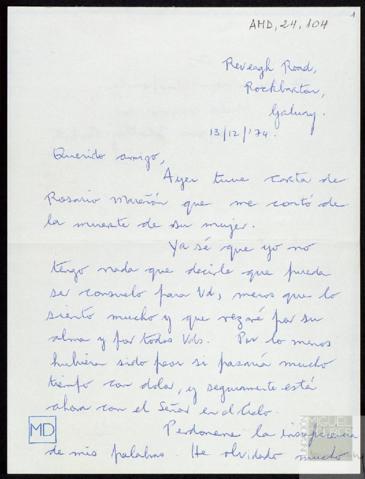 1
AMD, 24, 104
Reveagh Road,
Rockbarton,
Galway.
13/12/'74.
Querido amigo,
Ayer tuve carta de
Rosario Marañón que me contó de
la muerte de su mujer.
Ya sé que yo no
tengo nada que decirle que pueda
ser consuelo para Vd, menos que lo
siento mucho y que rezaré por su
alma y por todos Vds. Por lo menos
hubiera sido peor si pasaría mucho
tiempo con dolor, y seguramente está
ahora con el Señor en el Cielo.
Perdoneme la
de mis palabras. He olvidado mucho
MD